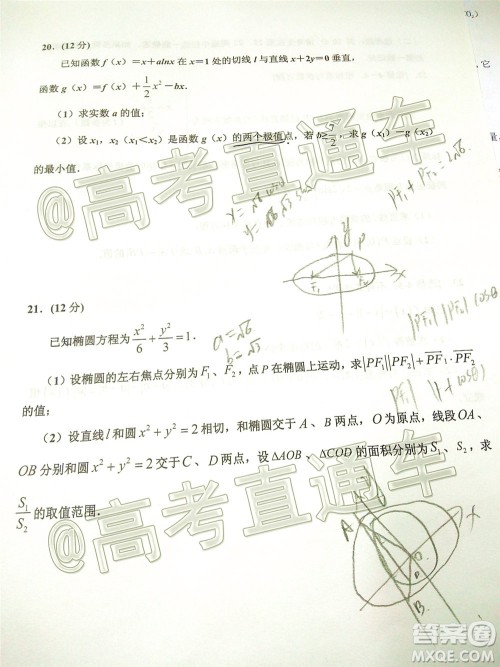 20．(12 分)
已知函数 f（x）＝x＋alnx 在 x＝1 处的切线 l 与直线 x＋2y＝0 垂直，
函数 g（x）＝f（x）＋\frac{1}{2}x²－bx．
（1）求实数 a 的值；
（2）设 x₁，x₂（x₁＜x₂）是函数 g（x）的两个极值点，若 b≥\frac{7}{2}，求 g（x₁）－g（x₂）
的最小值．
@高考直通车
PF₁+PF₂=2√6
y
P
F₁
F₂
x
21．(12 分)
已知椭圆方程为 \frac{x²}{6}+\frac{y²}{3}=1．
a=√6
b=√3
|PF₁||PF₂|cosθ
（1）设椭圆的左右焦点分别为 F₁、F₂，点 P 在椭圆上运动，求 |PF₁||PF₂|+\overline{PF₁}·\overline{PF₂}
的值；
（2）设直线 l 和圆 x²+y²=2 相切，和椭圆交于 A、B 两点，O 为原点，线段 OA、
OB 分别和圆 x²+y²=2 交于 C、D 两点，设 ΔAOB、ΔCOD 的面积分别为 S₁、S₂，求
\frac{S₁}{S₂} 的取值范围．
@高考直通车
A
B
x
答案圈
MXQE.COM